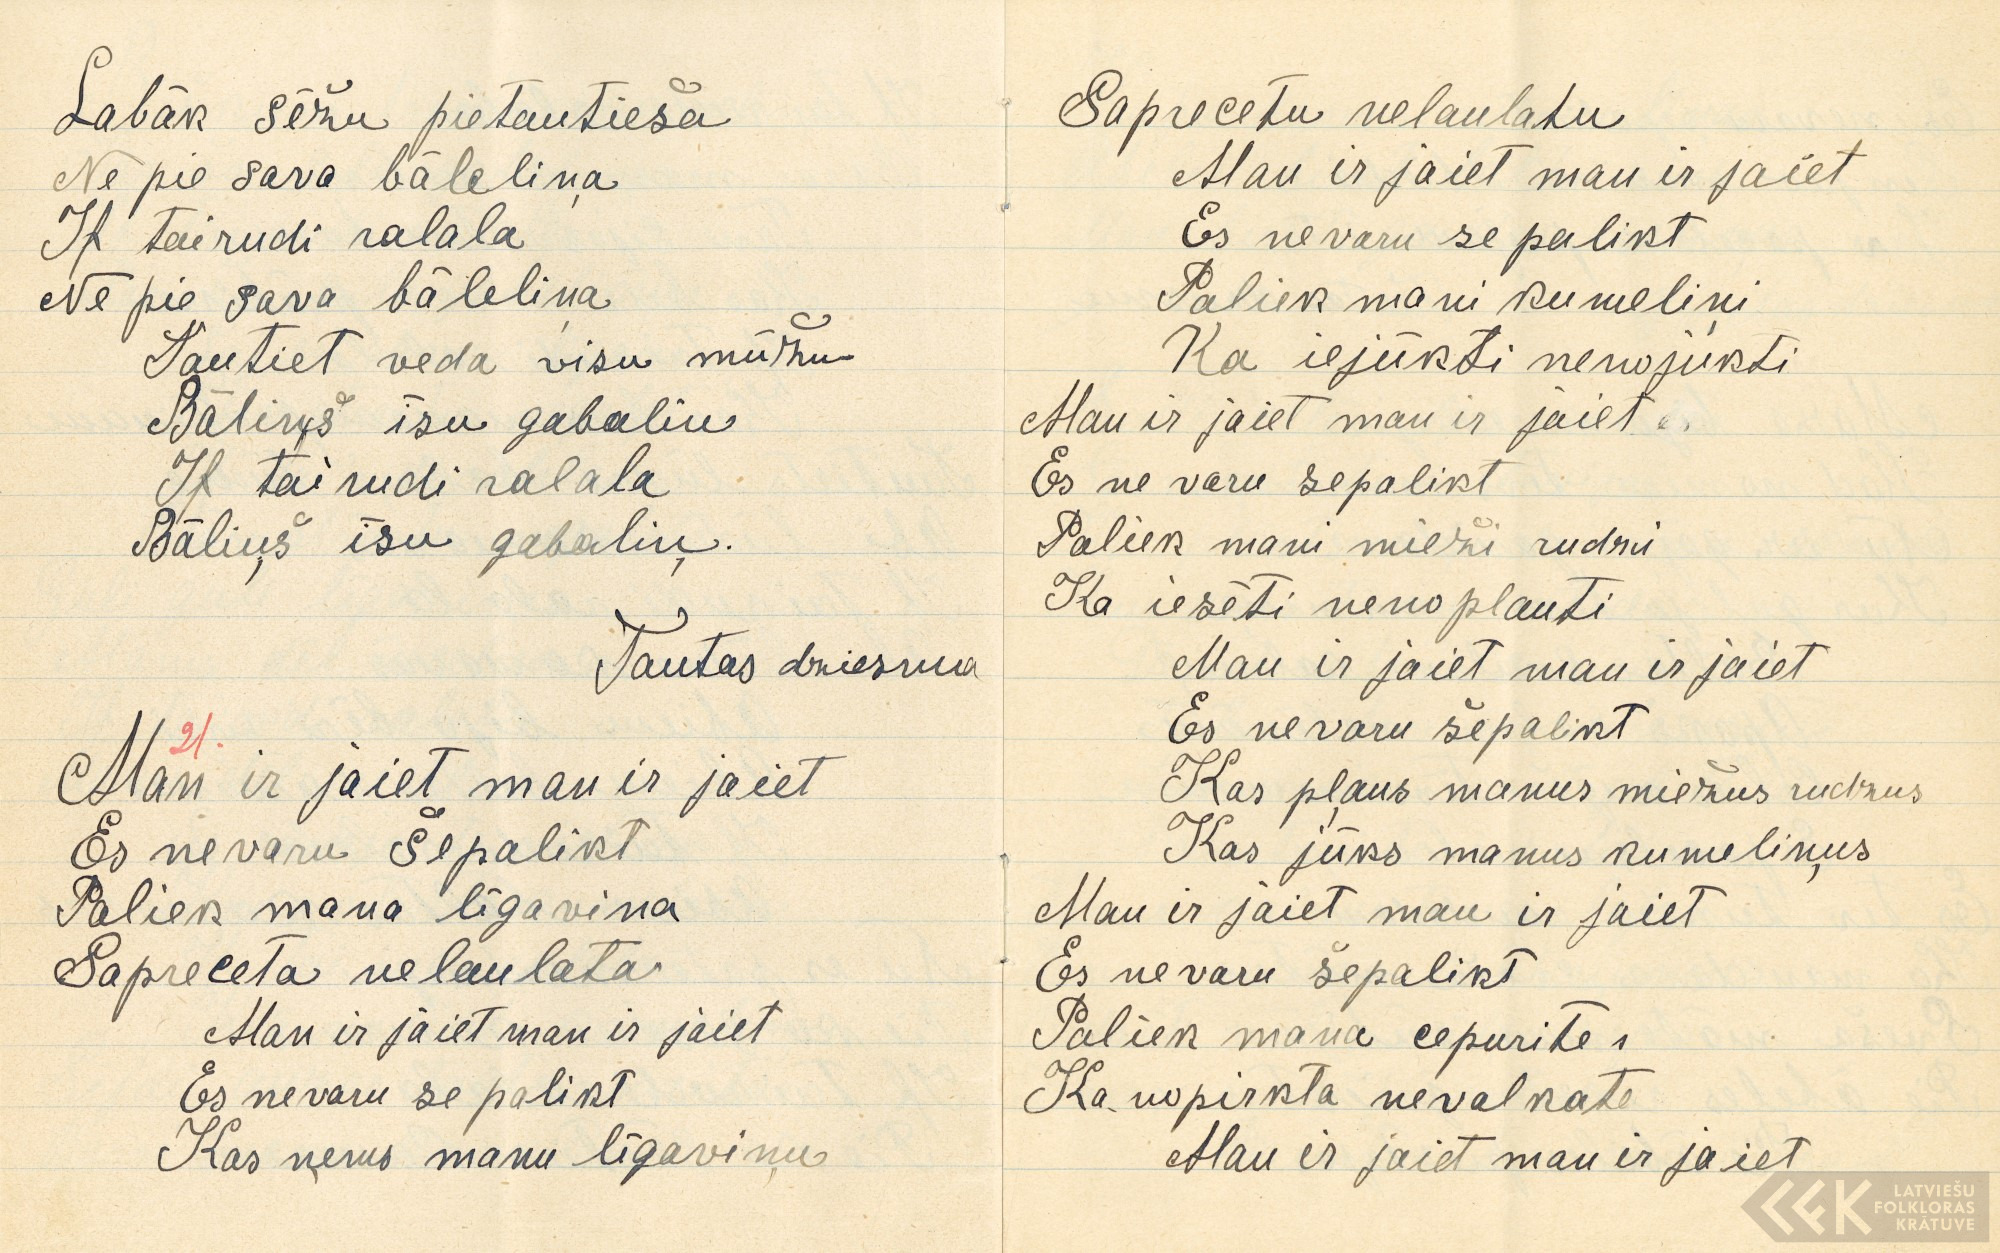 Labāk sēžu pietautieša
Nē pie sava bāleliņa
If tairudi ralala
Nē pie sava bāleliņa
Tautiet veda visu mūžu
Bāliņš īsu gabaliu
If tai rudi ralala
Bāliņš īsu gabaliņ.
Tautas dziesma
21.
Man ir jaiet man ir jaiet
Es nevaru šepalikt
Paliek mana līgavina
Sapreceta nelaulata
Man ir jaiet man ir jaiet
Es nevaru se palikt
Kas ņems manu līgaviņu
Saprecetu nelaulatu
Man ir jaiet man ir jaiet
Es nevaru se palikt
Paliek mani kumeliņi
Ka iejūkti nenojūkti
Man ir jaiet man ir jaiet
Es ne varu sepalikt
Paliek mani mieži rudzi
Ka iesēti nenoplauti
Man ir jaiet man ir jaiet
Es nevaru šepalikt
Kas pļaus manus miežus rudzus
Kas jūks manus kumeliņus
Man ir jaiet man ir jaiet
Es nevaru šepalikt
Paliek mana cepurite
Ka nopirkta nevalkate
Man ir jaiet man ir jaiet
LATVIEŠU
FOLKLORAS
KRĀTUVE